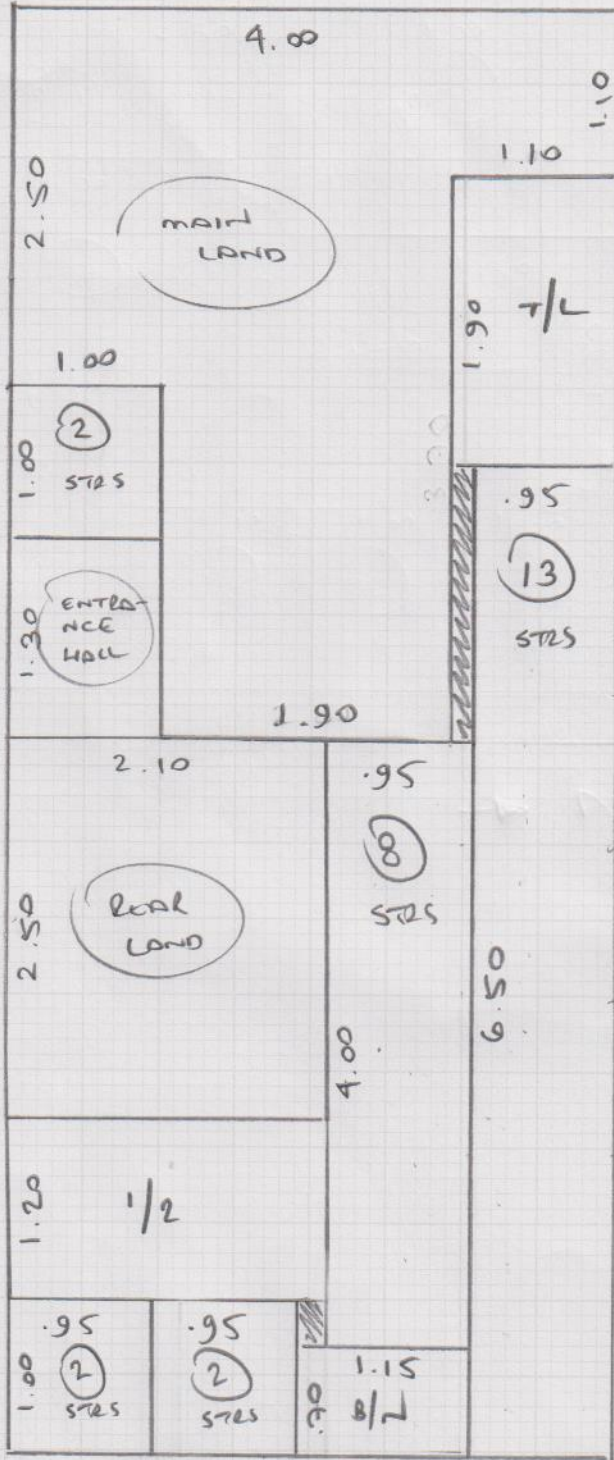 4.00
1.10
1.10
2.50
MAIN
LAND
1.90
T/L
1.00
1.00
2
STRS
3.00
.95
13
STRS
1.30
ENTRA-
NCE
HALL
1.90
2.10
.95
8
STRS
2.50
REAR
LAND
4.00
6.50
1.20
1/2
1.00
.95
2
STRS
.95
2
STRS
.70
1.15
B/L